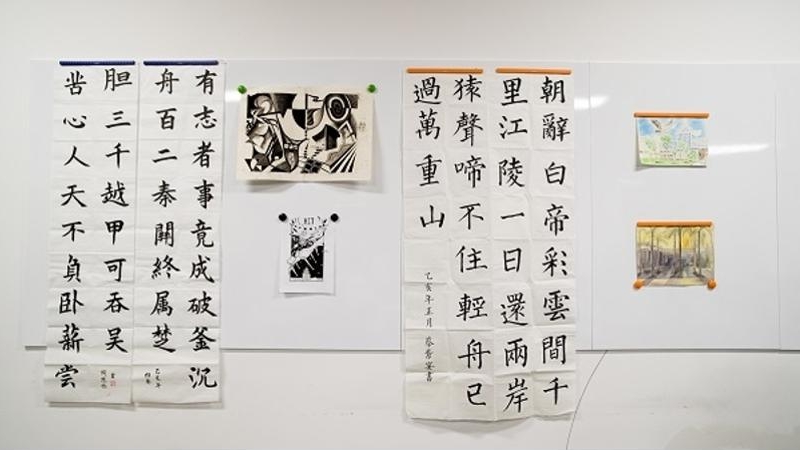 有志者事竟成破釜沉
舟百二秦關終属楚
苦心人天不負卧薪尝
胆三千越甲可吞吴
朝辭白帝彩雲間千
里江陵一日還兩岸
猿聲啼不住輕舟已
過萬重山